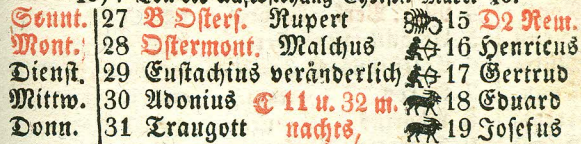 Sonnt. 27 B Osterf. Rupert 15 D2 Rem.
Mont. 28 Ostermont. Malchus 16 Henricus
Dienst. 29 Eustachius veränderlich 17 Gertrud
Mittw. 30 Adonius ☾ 11 u. 32 m. 18 Eduard
Donn. 31 Traugott nachts, 19 Josefus